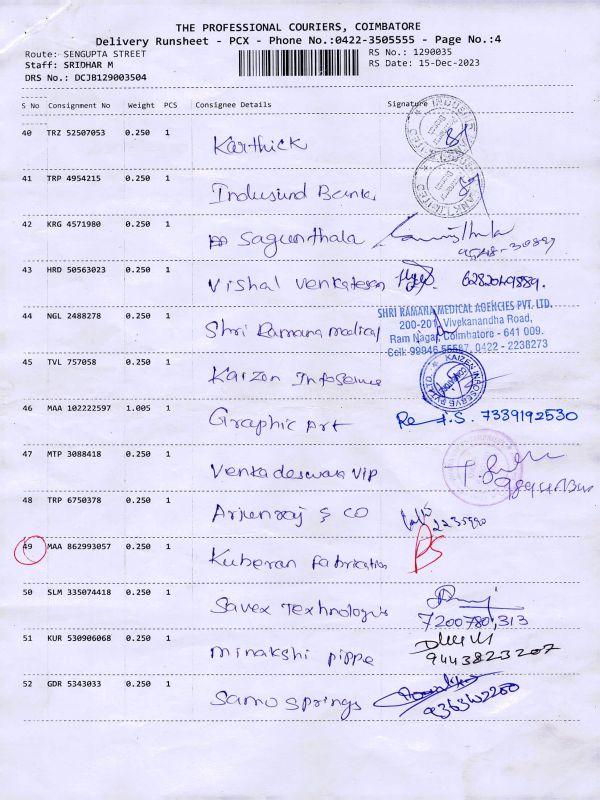 THE PROFESSIONAL COURIERS, COIMBATORE
Delivery Runsheet - PCX - Phone No.:0422-3505555 - Page No.:4
Route: SENGUPTA STREET
RS No.: 1290035
Staff: SRIDHAR M
RS Date: 15-Dec-2023
DRS No.: DCJB129003504
S No Consignment No Weight PCS Consignee Details Signature
40 TRZ 52507053 0.250 1 Karthick
41 TRP 4954215 0.250 1 Indusind Bank
42 KRG 4571980 0.250 1 Sagunthala
43 HRD 50563023 0.250 1 Vishal Venkatesan 6282049889.
44 NGL 2488278 0.250 1 Shri Ramana medical
SHRI RAMANA MEDICAL AGENCIES PVT. LTD.
200-201, Vivekanandha Road,
Ram Nagar, Coimbatore - 641 009.
Cell: 99946 55587, 0422 - 2238273
45 TVL 757058 0.250 1 Kaizen Infoserve
46 MAA 102222597 1.005 1 Graphic Art 7339192530
47 MTP 3088418 0.250 1 Venkadeswara Vip
48 TRP 6750378 0.250 1 Arjunraj & CO 2235990
49 MAA 862993057 0.250 1 Kuberan Fabrication
50 SLM 335074418 0.250 1 Savex Technologis
7200780,313
51 KUR 530906068 0.250 1 minakshi pippe
9443823207
52 GDR 5343033 0.250 1 Samo springs